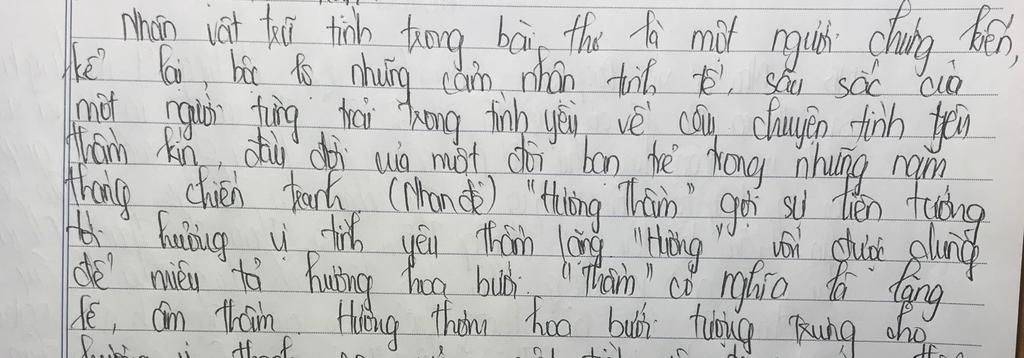 Nhân vật trữ tình trong bài thơ là một người chứng kiến,
kể lại bộc lộ những cảm nhận tinh tế, sâu sắc của
một người từng trải trong tình yêu về câu chuyện tình yêu
thầm kín, đầy đợi của một đôi bạn trẻ trong những năm
tháng chiến tranh (Nhan đề) "Hương Thầm" gợi sự liên tưởng
tới hương vị tình yêu thầm lặng "Hương" vốn được dùng
để miêu tả hương hoa bưởi. "Thầm" có nghĩa là lặng
lẽ, âm thầm. Hương thơm hoa bưởi tượng trưng cho